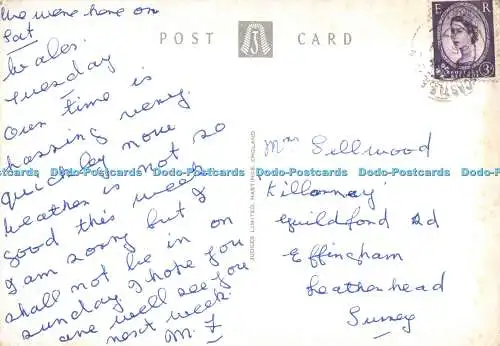 We were here on
Sat
POST CARD
E R
3D
Wales.
Tuesday
Our time is
passing very
quickly now
weather is not so
good this week
I am sorry but I
shall not be in on
Sunday. I hope you
are well see you
next week.
M. F
JUDGES LIMITED, HASTINGS, ENGLAND
Mrs Sellwood
'Killarney'
Guildford Rd
Effingham
Leatherhead
Surrey
Dodo-Postcards Dodo-Postcards Dodo-Postcards Dodo-Postcards Dodo-Postcards
www.dodo-postcards.com